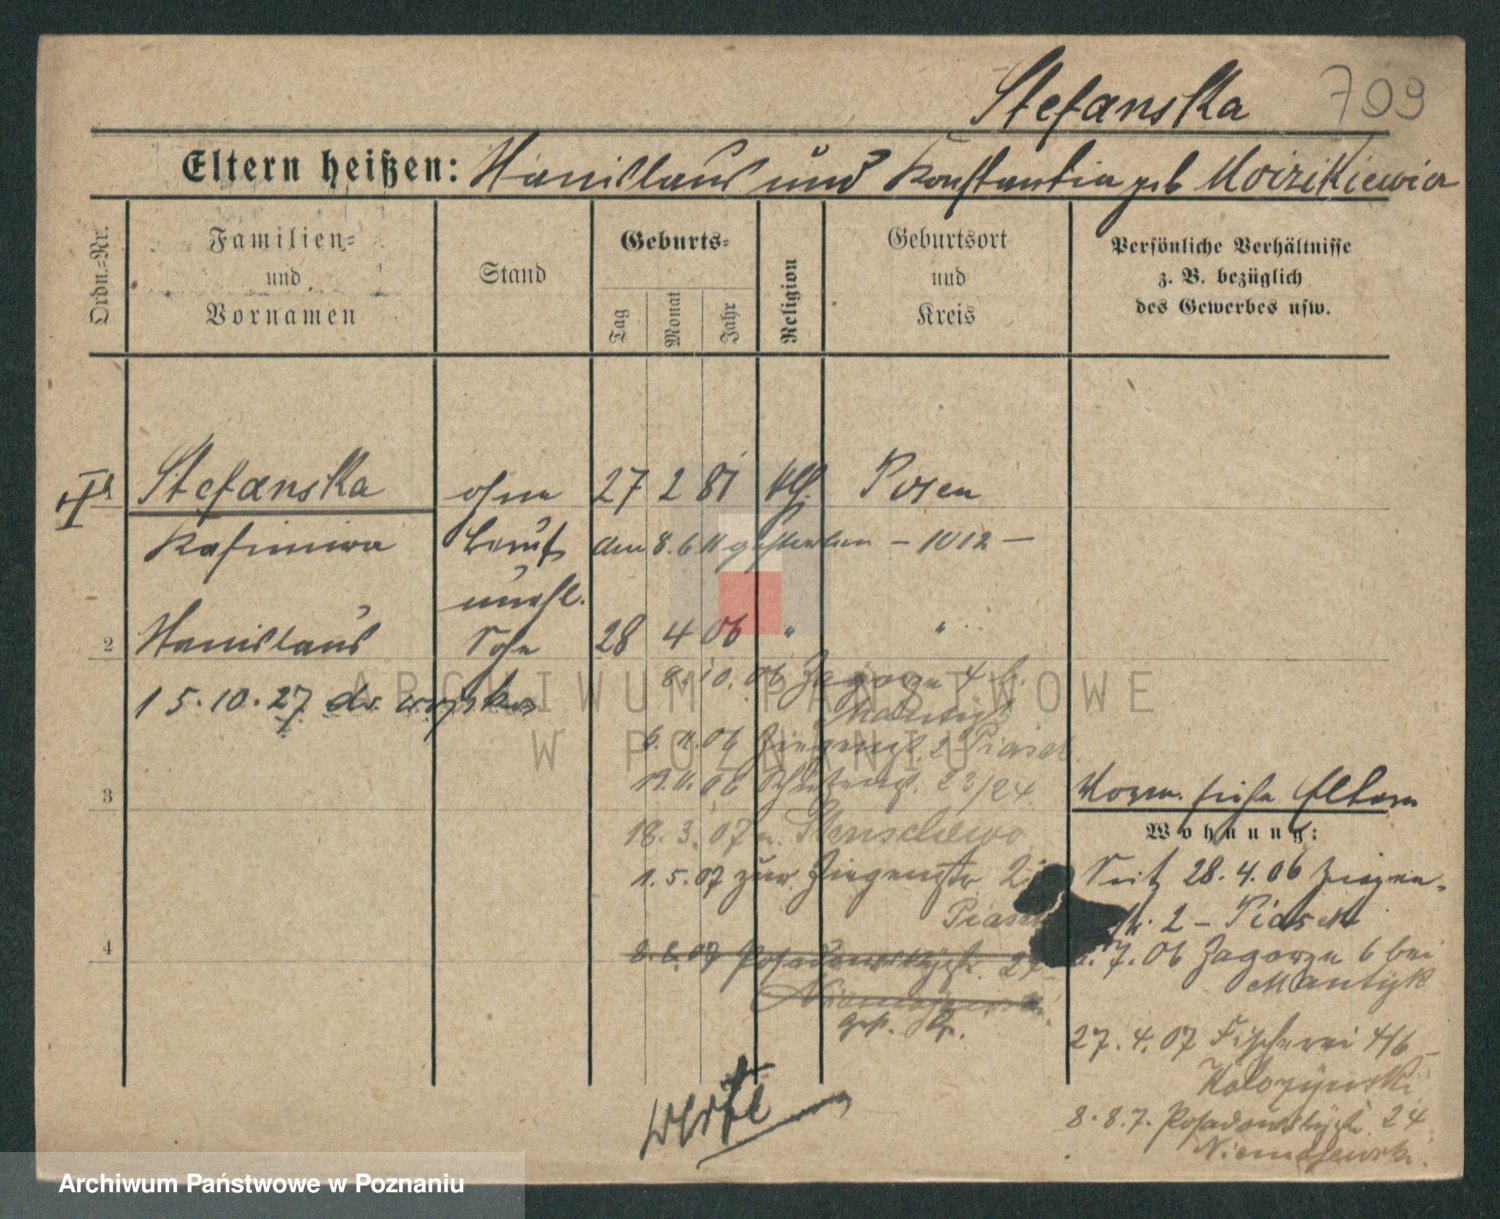 Stefanska 709
Eltern heißen: Stanislaus und Konstantia geb
Ordn.-Nr.
Familien-
und
Vornamen
Stand
Geburts-
Tag
Monat
Jahr
Religion
Geburtsort
und
Kreis
Persönliche Verhältnisse
z. B. bezüglich
des Gewerbes usw.
Stefanska ohne 27 2 81 kth. Posen
Kasimira Beruf den 8.6.11 gestorben – 1012 –
unehl.
2 Stanislaus Sohn 28 4 06 " "
15.10.27 do wojska
8.10.06 Zagorze 4 b.
Mantyk
6.11.06 Ziegengt. 2 Piasek
19.11.06 Schützengt. 23/24
18.3.07 n. Stenschewo
1.5.07 zur. Ziegenstr. 2
Piasek
8.8.07 Posadowskystr. 24
Niemojewski
gest.
3
4
Vorm. siehe Eltern
Wohnung:
Seit 28.4.06 Ziegen-
str. 2 – Piasek
7.06 Zagorze 6 bei
Mantyk
27.4.07 Fischerei 4/6
8.8.7. Posadowskystr. 24
Niemojewski.
ARCHIWUM PAŃSTWOWE
W POZNANIU
Archiwum Państwowe w Poznaniu